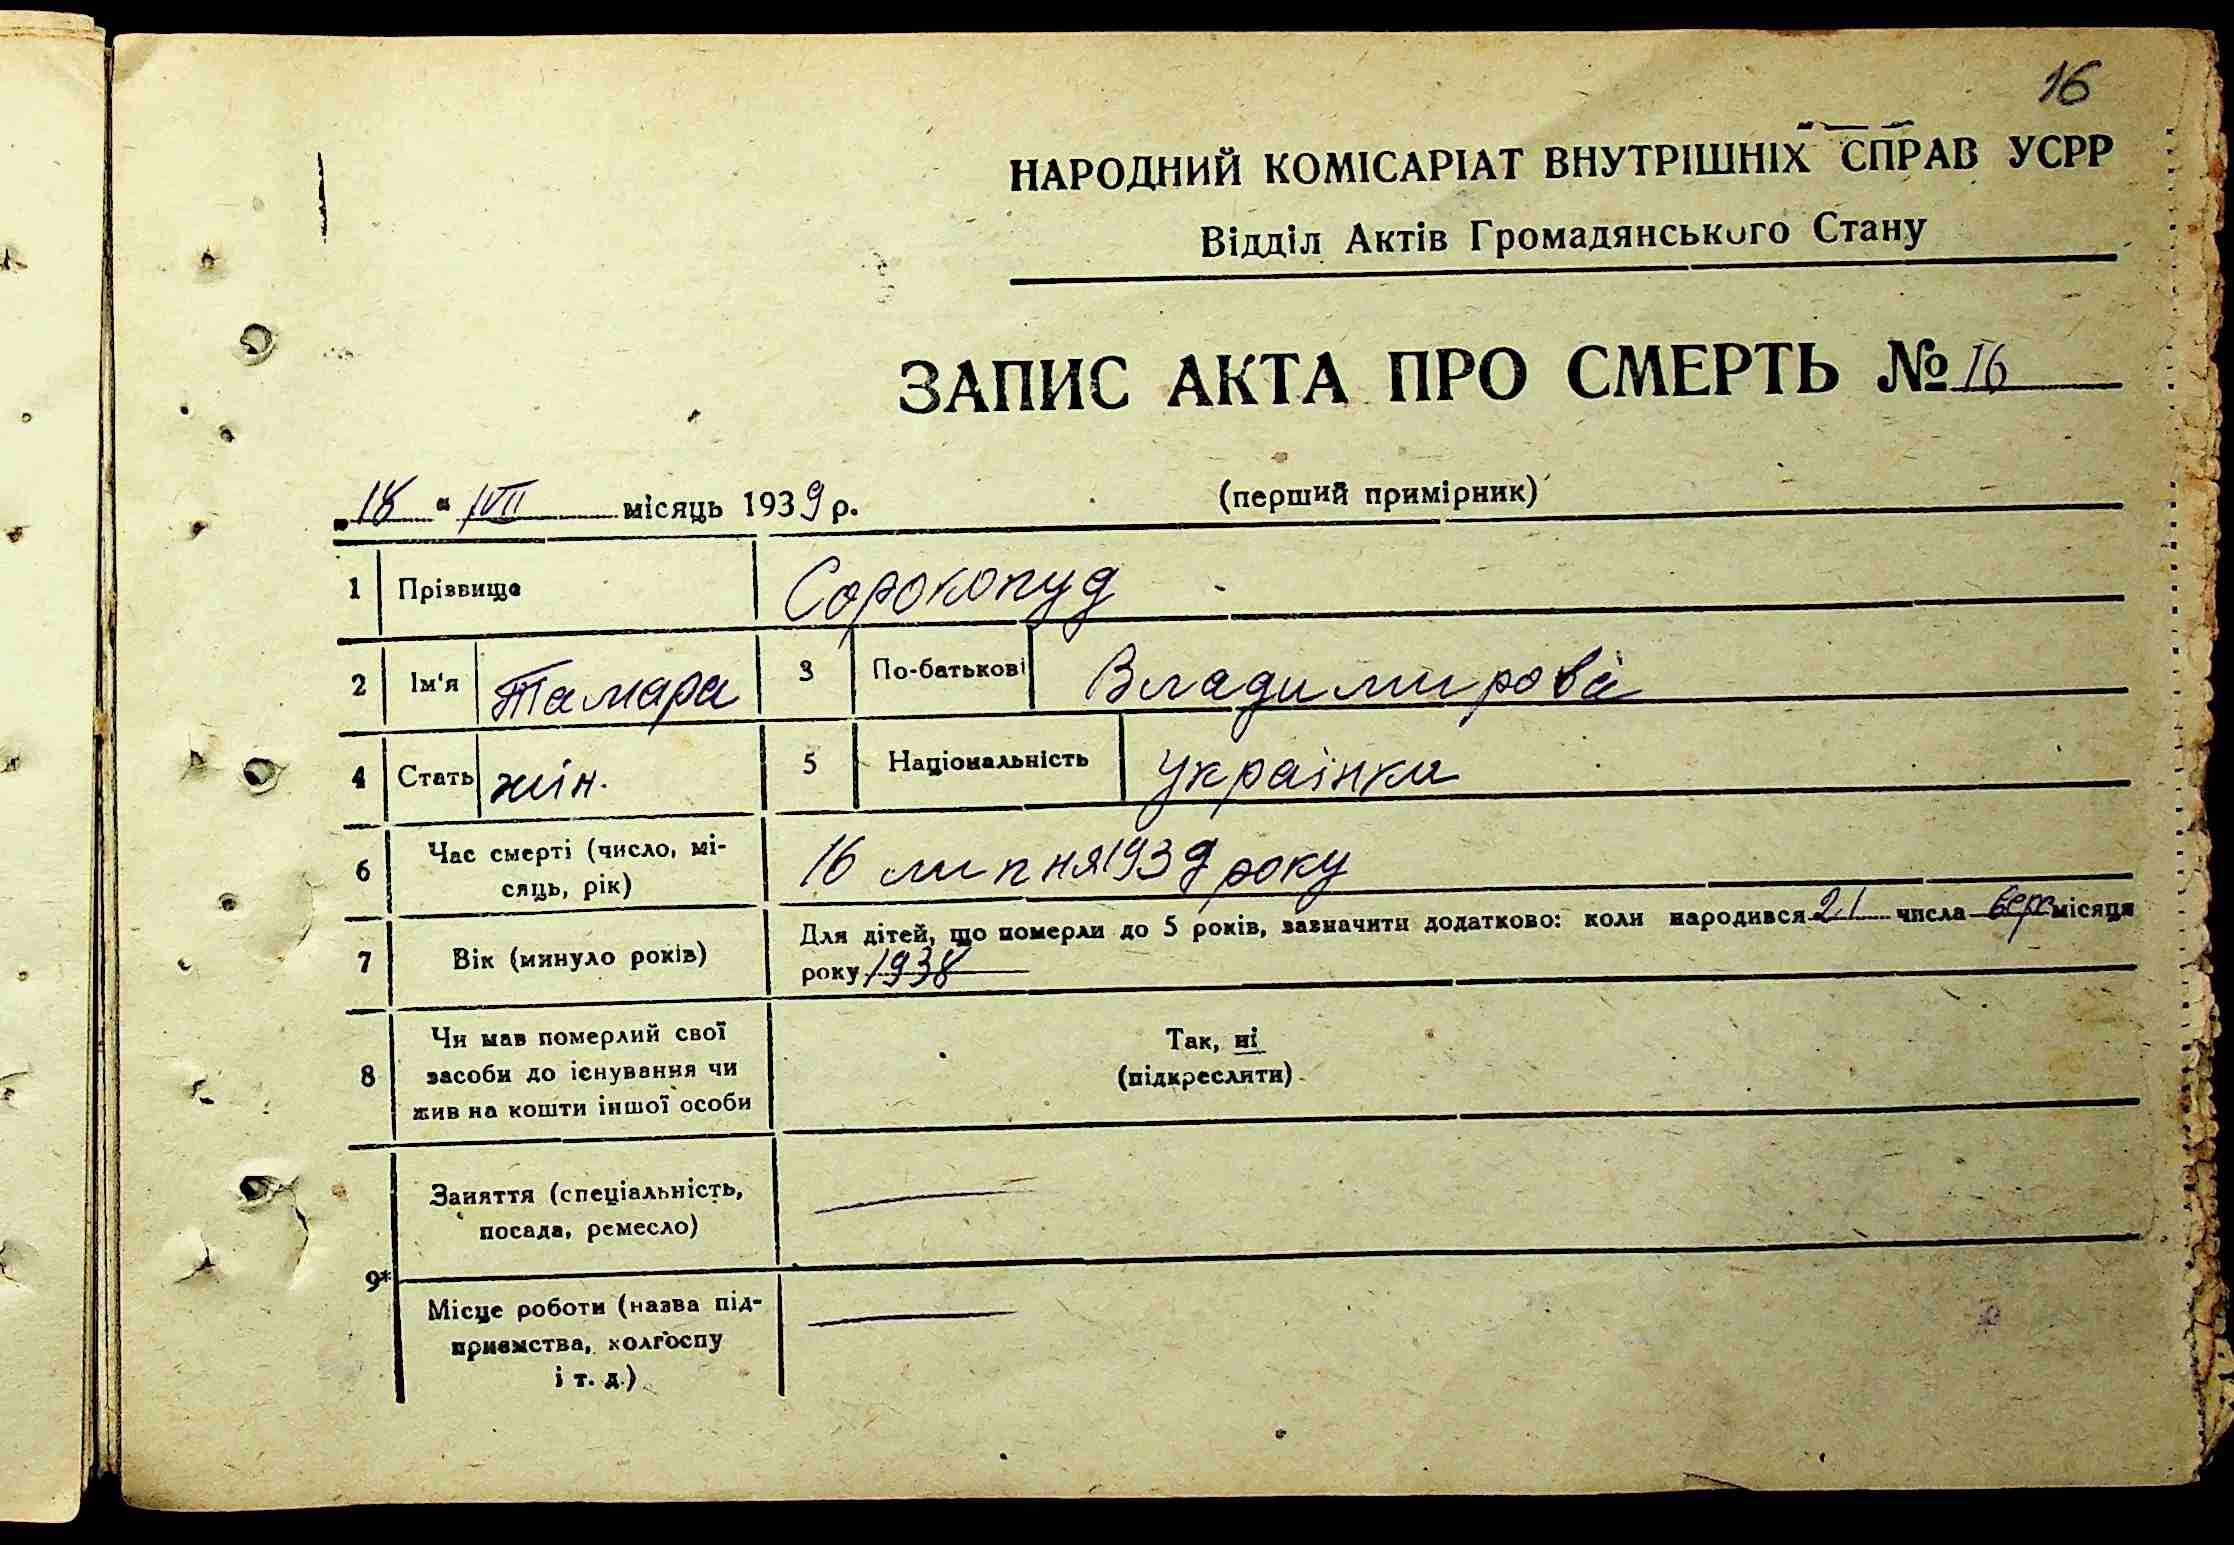 16
НАРОДНИЙ КОМІСАРІАТ ВНУТРІШНІХ СПРАВ УСРР
Відділ Актів Громадянського Стану
ЗАПИС АКТА ПРО СМЕРТЬ № 16
(перший примірник)
„18“ VII місяць 1939 р.
1 Прізвище Сорокопуд
2 Ім'я Тамара 3 По-батькові Владимирова
4 Стать жін. 5 Національність Українка
6 Час смерті (число, мі-
сяць, рік) 16 липня 1939 року
7 Вік (минуло років) Для дітей, що померли до 5 років, зазначити додатково: коли народився 21 числа берез місяця
року 1938
8 Чи мав померлий свої
засоби до існування чи
жив на кошти іншої особи
Так, ні
(підкресляти)
9* Заняття (спеціальність,
посада, ремесло)
Місце роботи (назва під-
приємства, колгоспу
і т. д.)